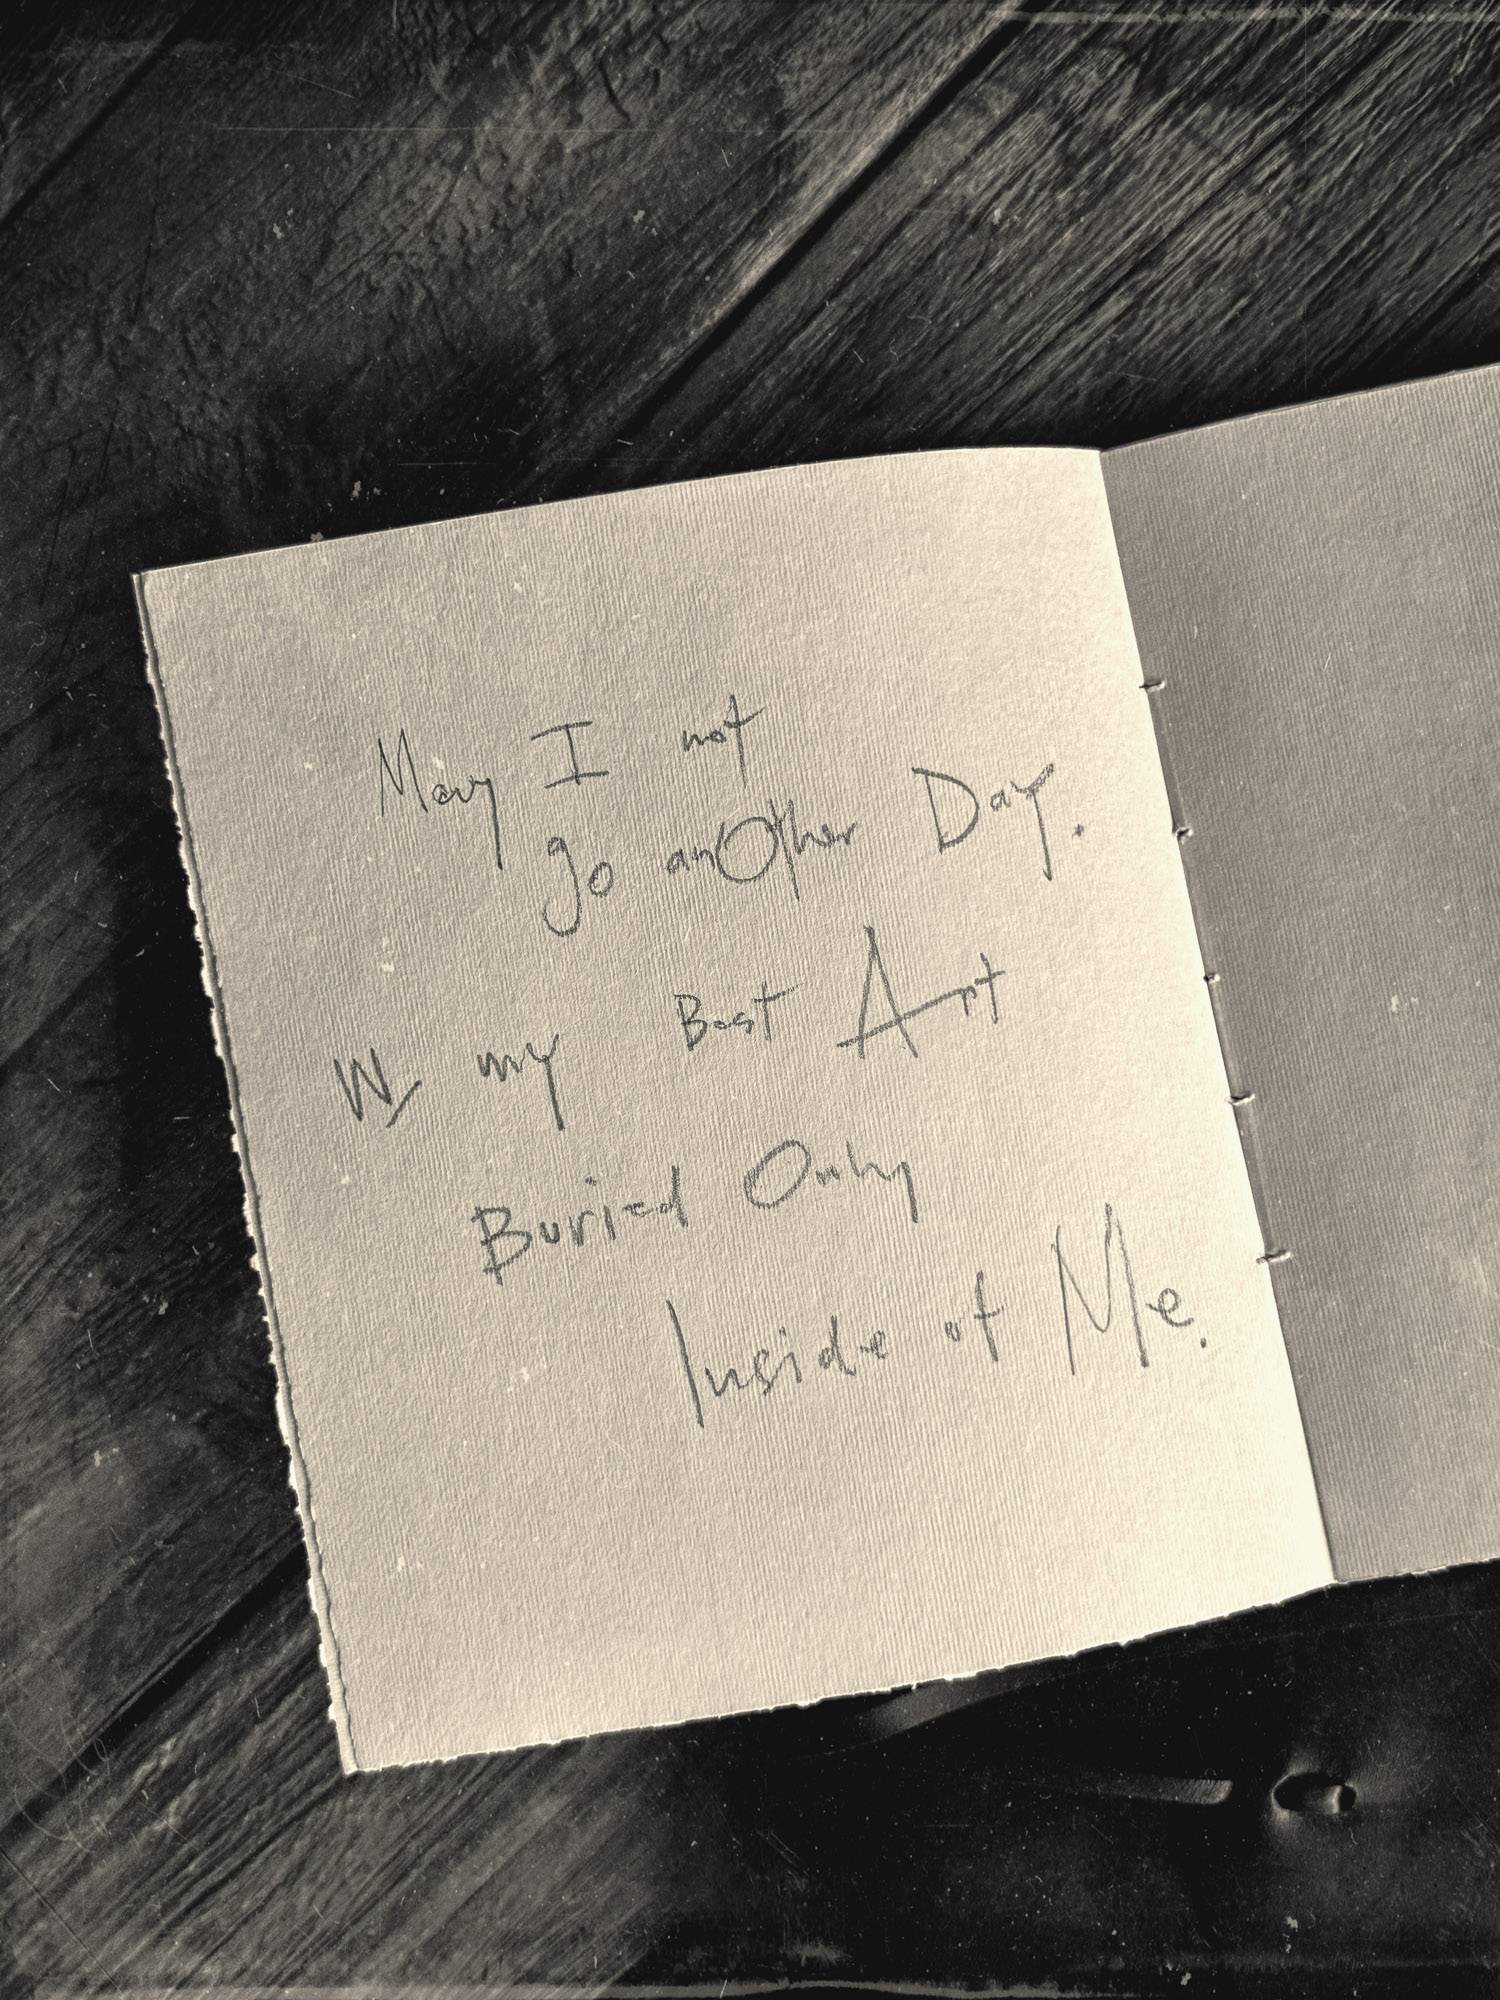 May I not
go anOther Day.
W/ my Best Art
Buried Only
Inside of Me.